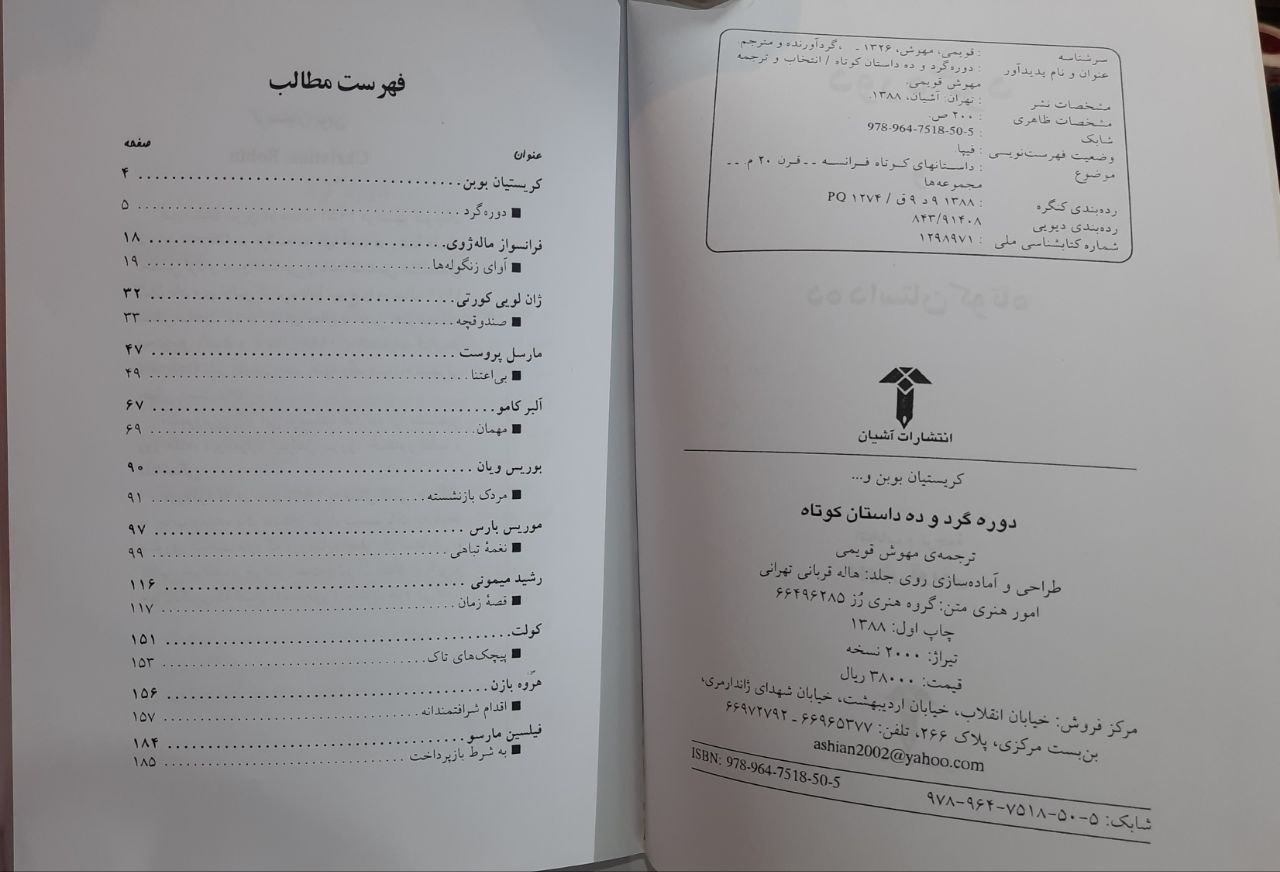 سرشناسه : قویمی، مهوش، ۱۳۲۶ - ، گردآورنده و مترجم
عنوان و نام پدیدآور : دوره‌گرد و ده داستان کوتاه / انتخاب و ترجمه
مهوش قویمی.
مشخصات نشر : تهران: آشیان، ۱۳۸۸.
مشخصات ظاهری : ۲۰۰ ص.
شابک : 978-964-7518-50-5
وضعیت فهرست‌نویسی : فیپا.
موضوع : داستانهای کوتاه فرانسه -- قرن ۲۰ م. --
مجموعه‌ها
رده‌بندی کنگره : ۱۳۸۸ ۹ د ۹ ق / PQ ۱۲۷۴
رده‌بندی دیویی : ۸۴۳/۹۱۴۰۸
شماره کتابشناسی ملی : ۱۲۹۸۹۷۱
انتشارات آشیان
کریستیان بوبن و...
دوره گرد و ده داستان کوتاه
ترجمه‌ی مهوش قویمی
طراحی و آماده‌سازی روی جلد: هاله قربانی تهرانی
امور هنری متن: گروه هنری رُز ۶۶۴۹۶۲۸۵
چاپ اول: ۱۳۸۸
تیراژ: ۲۰۰۰ نسخه
قیمت: ۳۸۰۰۰ ریال
مرکز فروش: خیابان انقلاب، خیابان اردیبهشت، خیابان شهدای ژاندارمری،
بن‌بست مرکزی، پلاک ۲۶۶، تلفن: ۶۶۹۶۵۳۷۷ - ۶۶۹۷۲۷۹۲
ashian2002@yahoo.com
شابک: ۵-۵۰-۷۵۱۸-۹۶۴-۹۷۸ ISBN: 978-964-7518-50-5
فهرست مطالب
عنوان صفحه
کریستیان بوبن ........ ۴
■ دوره‌گرد ........ ۵
فرانسواز ماله‌ژوی ........ ۱۸
■ آوای زنگوله‌ها ........ ۱۹
ژان لویی کورتی ........ ۳۲
■ صندوقچه ........ ۳۳
مارسل پروست ........ ۴۷
■ بی‌اعتنا ........ ۴۹
آلبر کامو ........ ۶۷
■ مهمان ........ ۶۹
بوریس ویان ........ ۹۰
■ مردک بازنشسته ........ ۹۱
موریس بارس ........ ۹۷
■ نغمهٔ تباهی ........ ۹۹
رشید میمونی ........ ۱۱۶
■ قصهٔ زمان ........ ۱۱۷
کولت ........ ۱۵۱
■ پیچک‌های تاک ........ ۱۵۳
هروه بازن ........ ۱۵۶
■ اقدام شرافتمندانه ........ ۱۵۷
فیلسین مارسو ........ ۱۸۴
■ به شرط بازپرداخت ........ ۱۸۵